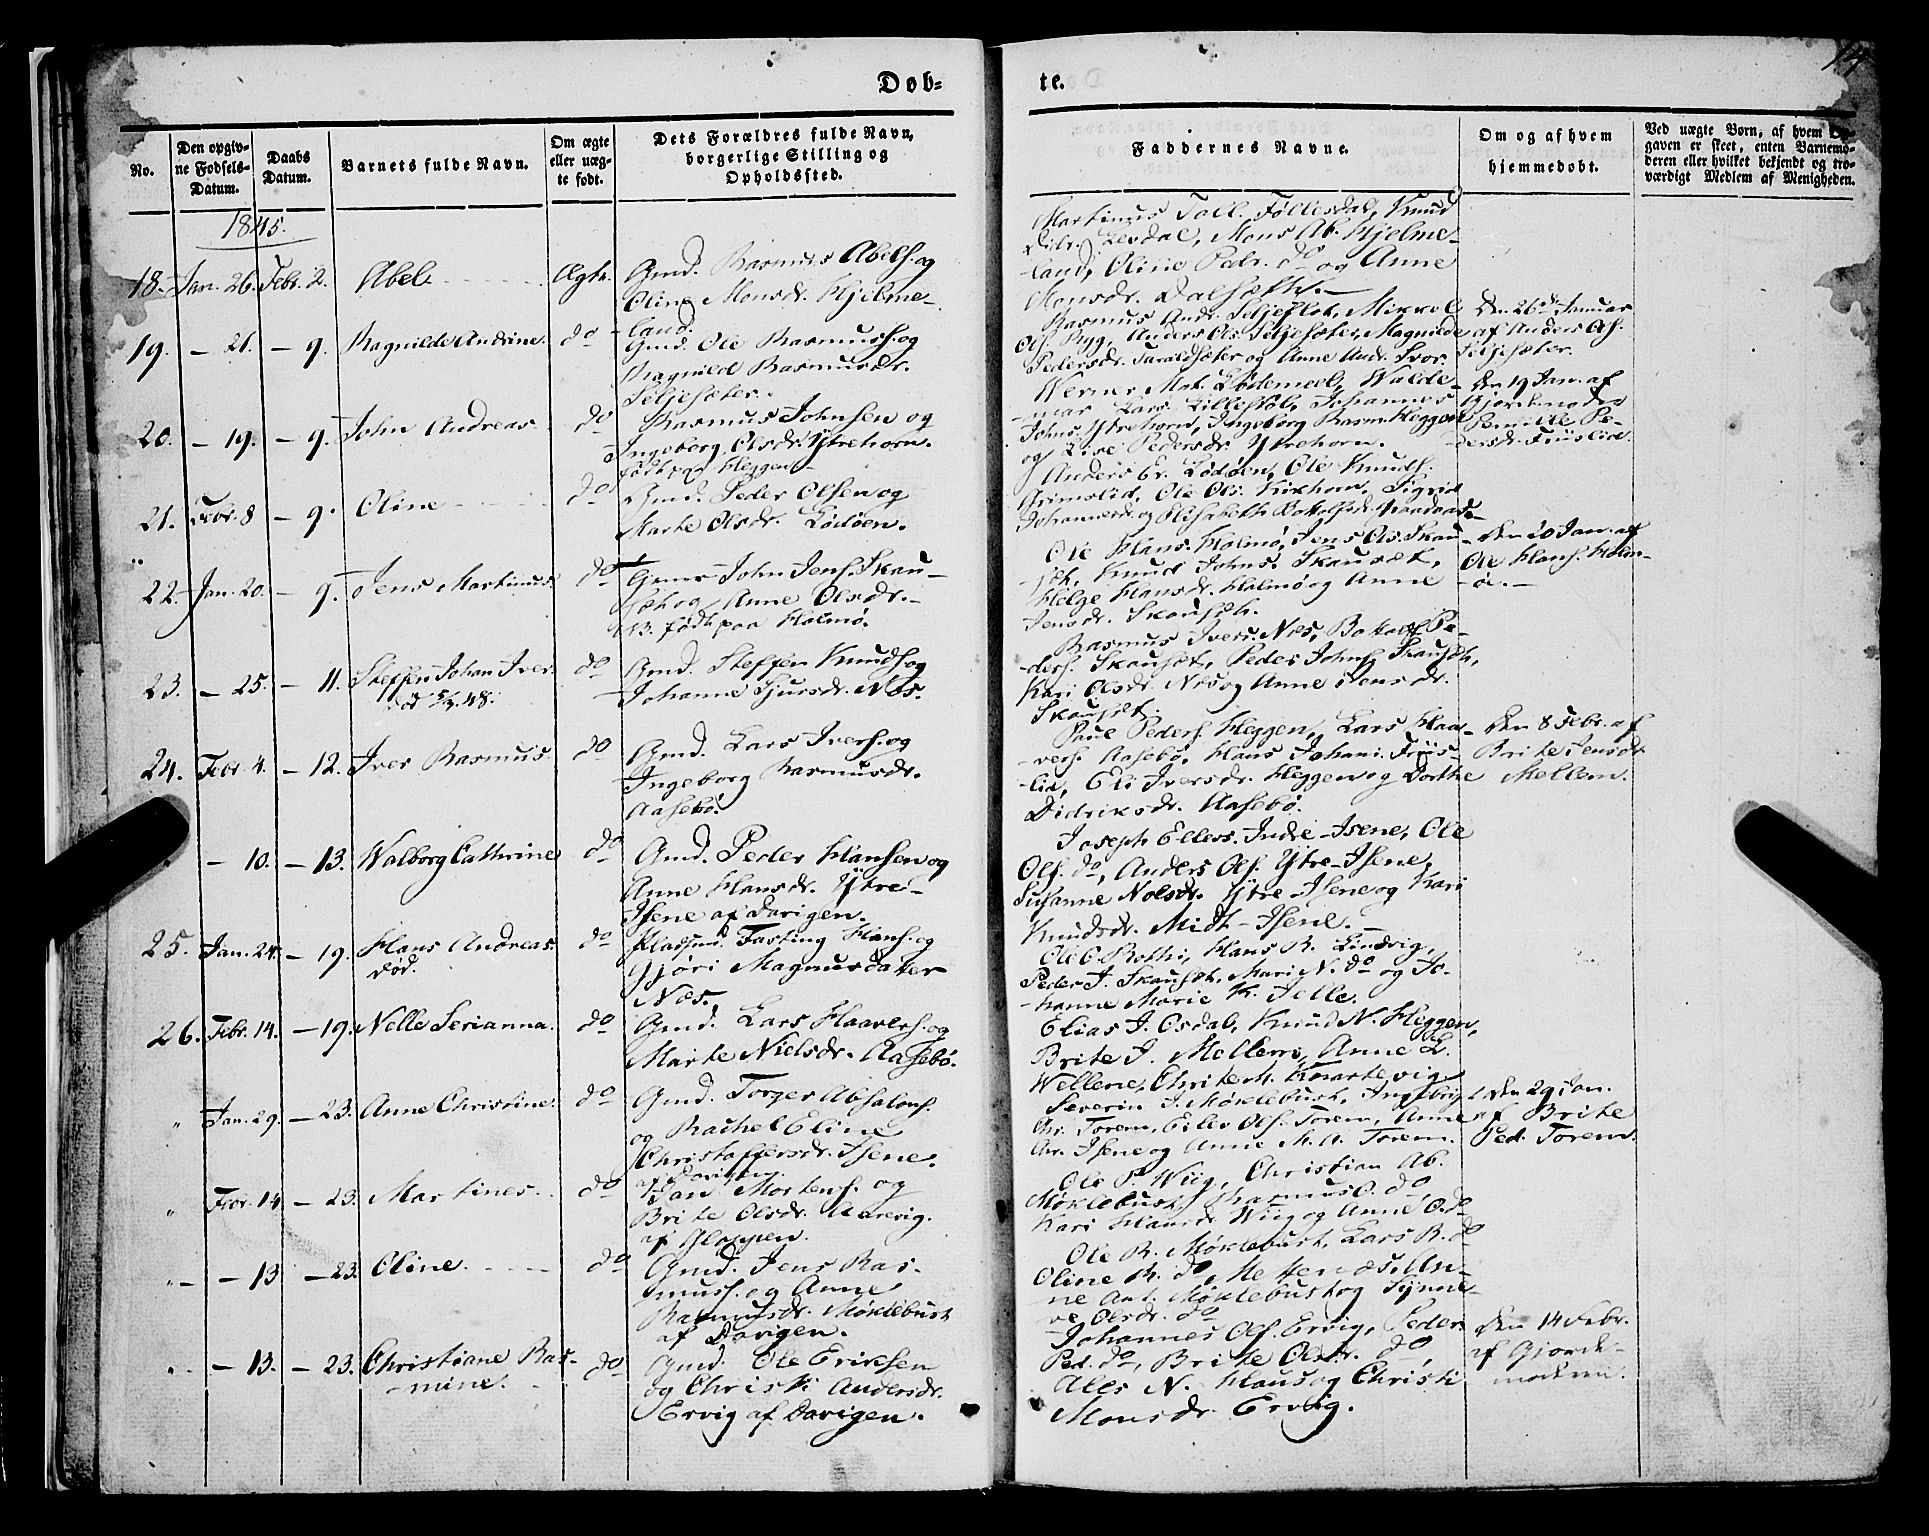 14
Døb-
te.
No.
Den opgiv-
ne Fødsels-
Datum.
Daabs
Datum.
Barnets fulde Navn.
Om ægte
eller uæg-
te født.
Dets Forældres fulde Navn,
borgerlige Stilling og
Opholdssted.
Faddernes Navne.
Om og af hvem
hjemmedøbt.
Ved uægte Børn, af hvem Op-
gaven er skeet, enten Barnemo-
deren eller hvilket bekjendt og tro-
værdigt Medlem af Menigheden.
1845.
18. Jan. 26. Febr. 2. Abel Ægte. Gmd. Rasmus Abels. og
Oline Monsdr. Hjelme-
land.
Martinus Toll. Føllesdal, Knud
Didr. Levdal, Mons Ab. Hjelme-
land, Oline Pedr. do og Anne
Monsdr. Dalsæth.
19. — 21. — 9. Ragnilde Andrine. do Gmd. Ole Rasmuss. og
Magnild Rasmusdr.
Seljesæter.
Rasmus Andr. Seljeflot, Mikkel
Ols. Ryg, Anders Ols. Seljesæter, Magnilde
Pedersdr. Taraldsæter og Anne Andr. Svor.
Den 26de Januar
af Anders Ols.
Seljesæter.
20. — 19. — 9. John Andreas. do Rasmus Johnsen og
Ingeborg Olsdr. Ytrehorn.
født paa Heggen
Werner Mat. Lødemel, Walde-
mar Lars. Lillestøl, Johannes
Johns. Ytrehorn, Ingeborg Rasm. Heggen
og Lise Pedersdr. Ytrehorn.
Den 19 Jan. af
Gjordemoder
Pernille Pe-
dersdr. Friislid.
21. Febr. 8 — 9. Oline do Gmd. Peder Olsen og
Marte Olsdr. Lødøen.
Anders Er. Lødøen, Ole Knuds.
Grimslid, Ole Ols. Kirkhorn, Sigrid
Johannesdr. og Elisabeth Bottolfsdr.
22. Jan. 20. — 9. Jens Martinus. do John Jens. Skau-
sæt og Anne Olsdr.
NB. født paa Holmø.
Ole Hans. Holmø, Jens Ols. Skau-
sæt, Knud Johns. Skausæt,
Helge Hansdr. Holmø og Anne
Jensdr. Skausæt.
Den 20 Jan. af
Ole Hans. Holm-
ø.
23. — 25. — 11. Steffen Johan Iver. do Gmd. Steffen Knuds. og
død 5/3. 48.
Johanne Sjursdr. Næs.
Rasmus Ivers. Næs, Bottolf Pe-
ders. Skausæt, Peder Johns. Skausæt,
Kari Olsdr. Næs og Anne Jensdr.
Skausæt.
24. Febr. 4. — 12. Iver Rasmus. do Gmd. Lars Ivers. og
Ingeborg Rasmusdr.
Aasebø.
Paul Peders. Heggen, Lars Haa-
vers. Aasebø, Hans Johani. Friis-
lid, Eli Iversdr. Heggen og Dorthe
Didriksdr. Aasebø.
Den 8 Febr. af
Brite Jensdr.
Mellem.
— 10. — 13. Walborg Cathrine do Gmd. Peder Hansen og
Anne Hansdr. Ytre-
Isene af Davigen.
Joseph Ellers. Indre-Isene, Ole
Ols. do, Anders Ols. Ytre-Isene,
Susanne Nolsdr. Ytre-Isene og Kari
Knudsdr. Midt-Isene.
25. Jan. 24. — 19. Hans Andreas. do Pladsmd. Fasting Hans. og
død.
Gjøri Magnusdatter
Næs.
Ole O. Rothi, Hans R. Lindvig,
Peder J. Skausæt, Mari N. do og Jo-
hanne Marie K. Jelle.
26. Febr. 14. — 19. Nelle Serianna. do Gmd. Lars Haavers. og
Marte Nielsdr. Aasebø.
Elias J. Osdal, Knud N. Heggen,
Brite J. Mellem, Anne L.
Wellene, Christe M. Knartevig.
" Jan. 29. — 23. Anne Christine. do Gmd. Torger Absalons.
og Rachel Eline
Christoffersdr. Isene.
af Davigen.
Severin J. Møklebust, Ingebrigt
Chr. Torem, Eilev Ols. Torem, Anne
Chr. Isene og Anne M. A. Torem.
Den 29 Jan.
af Brite
Ped. Torem.
" Febr. 14 — 23. Martines. do Jan Mortens. og
Brite Olsdr. Aarevig.
af Gloppen.
Ole P. Wiig, Christian Ab.
Møklebust, Rasmus O. do
Kari Hansdr. Wiig og Anne O. do
" — 13 — 23. Oline. do Gmd. Jens Ras-
muss. og Anne
Rasmusdr. Møklebust
af Davigen.
Ole R. Møklebust, Lars R. do
Oline R. do, An-
ne Ant. Møklebust og Synne-
ve Olsdr. do
" — 13. — 23. Christiane Ras- do Gmd. Ole Eriksen
mine.
og Christi Andersdr.
Ervig af Davigen.
Johannes Ols. Ervig, Peder
Ped. do, Brite Olsdr. do,
Ales N. Haus og Christi
Monsdr. Ervig.
Den 14 Febr.
af Gjorde-
moderen.